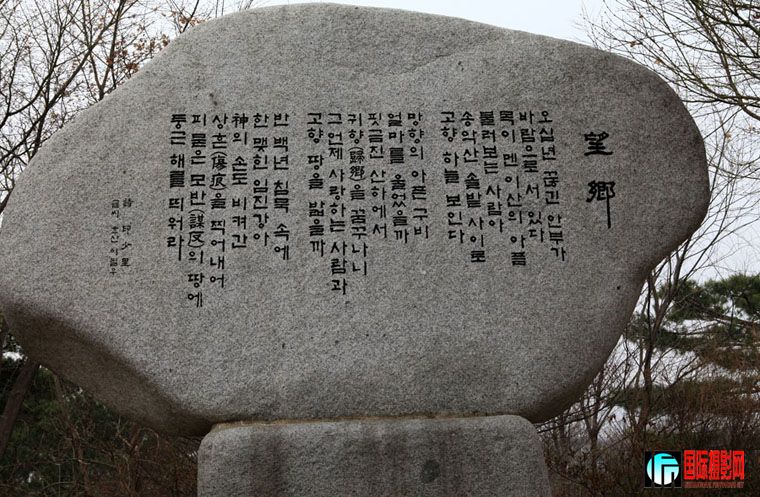 望鄉
오십년 끊긴 안부가
바람으로 서 있다
목이 멘 이산의 아픔
불러보는 사람아
송악산 솔밭 사이로
고향 하늘 보인다
망향의 아픈 구비
얼마를 울었을까
핏금진 산하에서
귀향(歸鄕)을 꿈꾸나니
그 언제 사랑하는 사람과
고향 땅을 밟을까
반 백년 침묵 속에
한 맺힌 임진강아
神의 손도 비켜간
상흔(傷痕)을 찍어내어
피 물은 모반(謀反)의 땅에
둥근 해를 띄워라
詩 印少里
글씨
国际摄影网